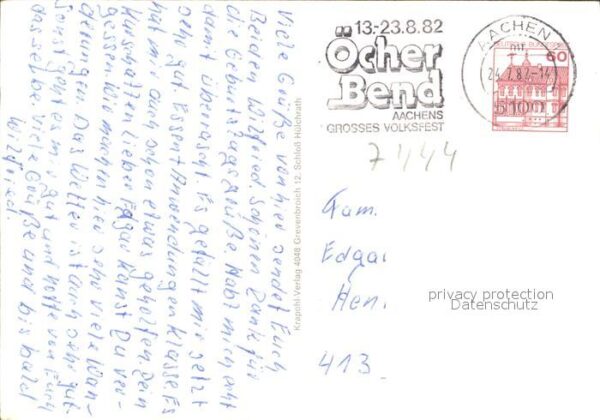 Viele Grüße von hier sendet Euch
Beiden Wilfried. Schönen Dank für
die Geburtstagsgrüße. Hab mich echt
damit überrascht. Es gefällt mir jetzt
sehr gut. Essen + Anwendungen Klasse. Es
hat mir auch schon etwas geholfen. Dein
Kurschatten lieber Edgar kanst Du ver-
gessen. Wir machen hier sehr viele Wan-
derungen. Das Wetter ist auch sehr gut.
Sonst geht es mir gut und hoffe von Euch
dasselbe. Viele Grüße und bis bald
Wilfried.
Krapohl-Verlag 4048 Grevenbroich 12, Schloß Hülchrath
13.-23.8.82
Öcher
Bend
AACHENS
GROSSES VOLKSFEST
AACHEN
5100
60
7444
Fam.
Edgar
Hen.
413.
privacy protection
Datenschutz